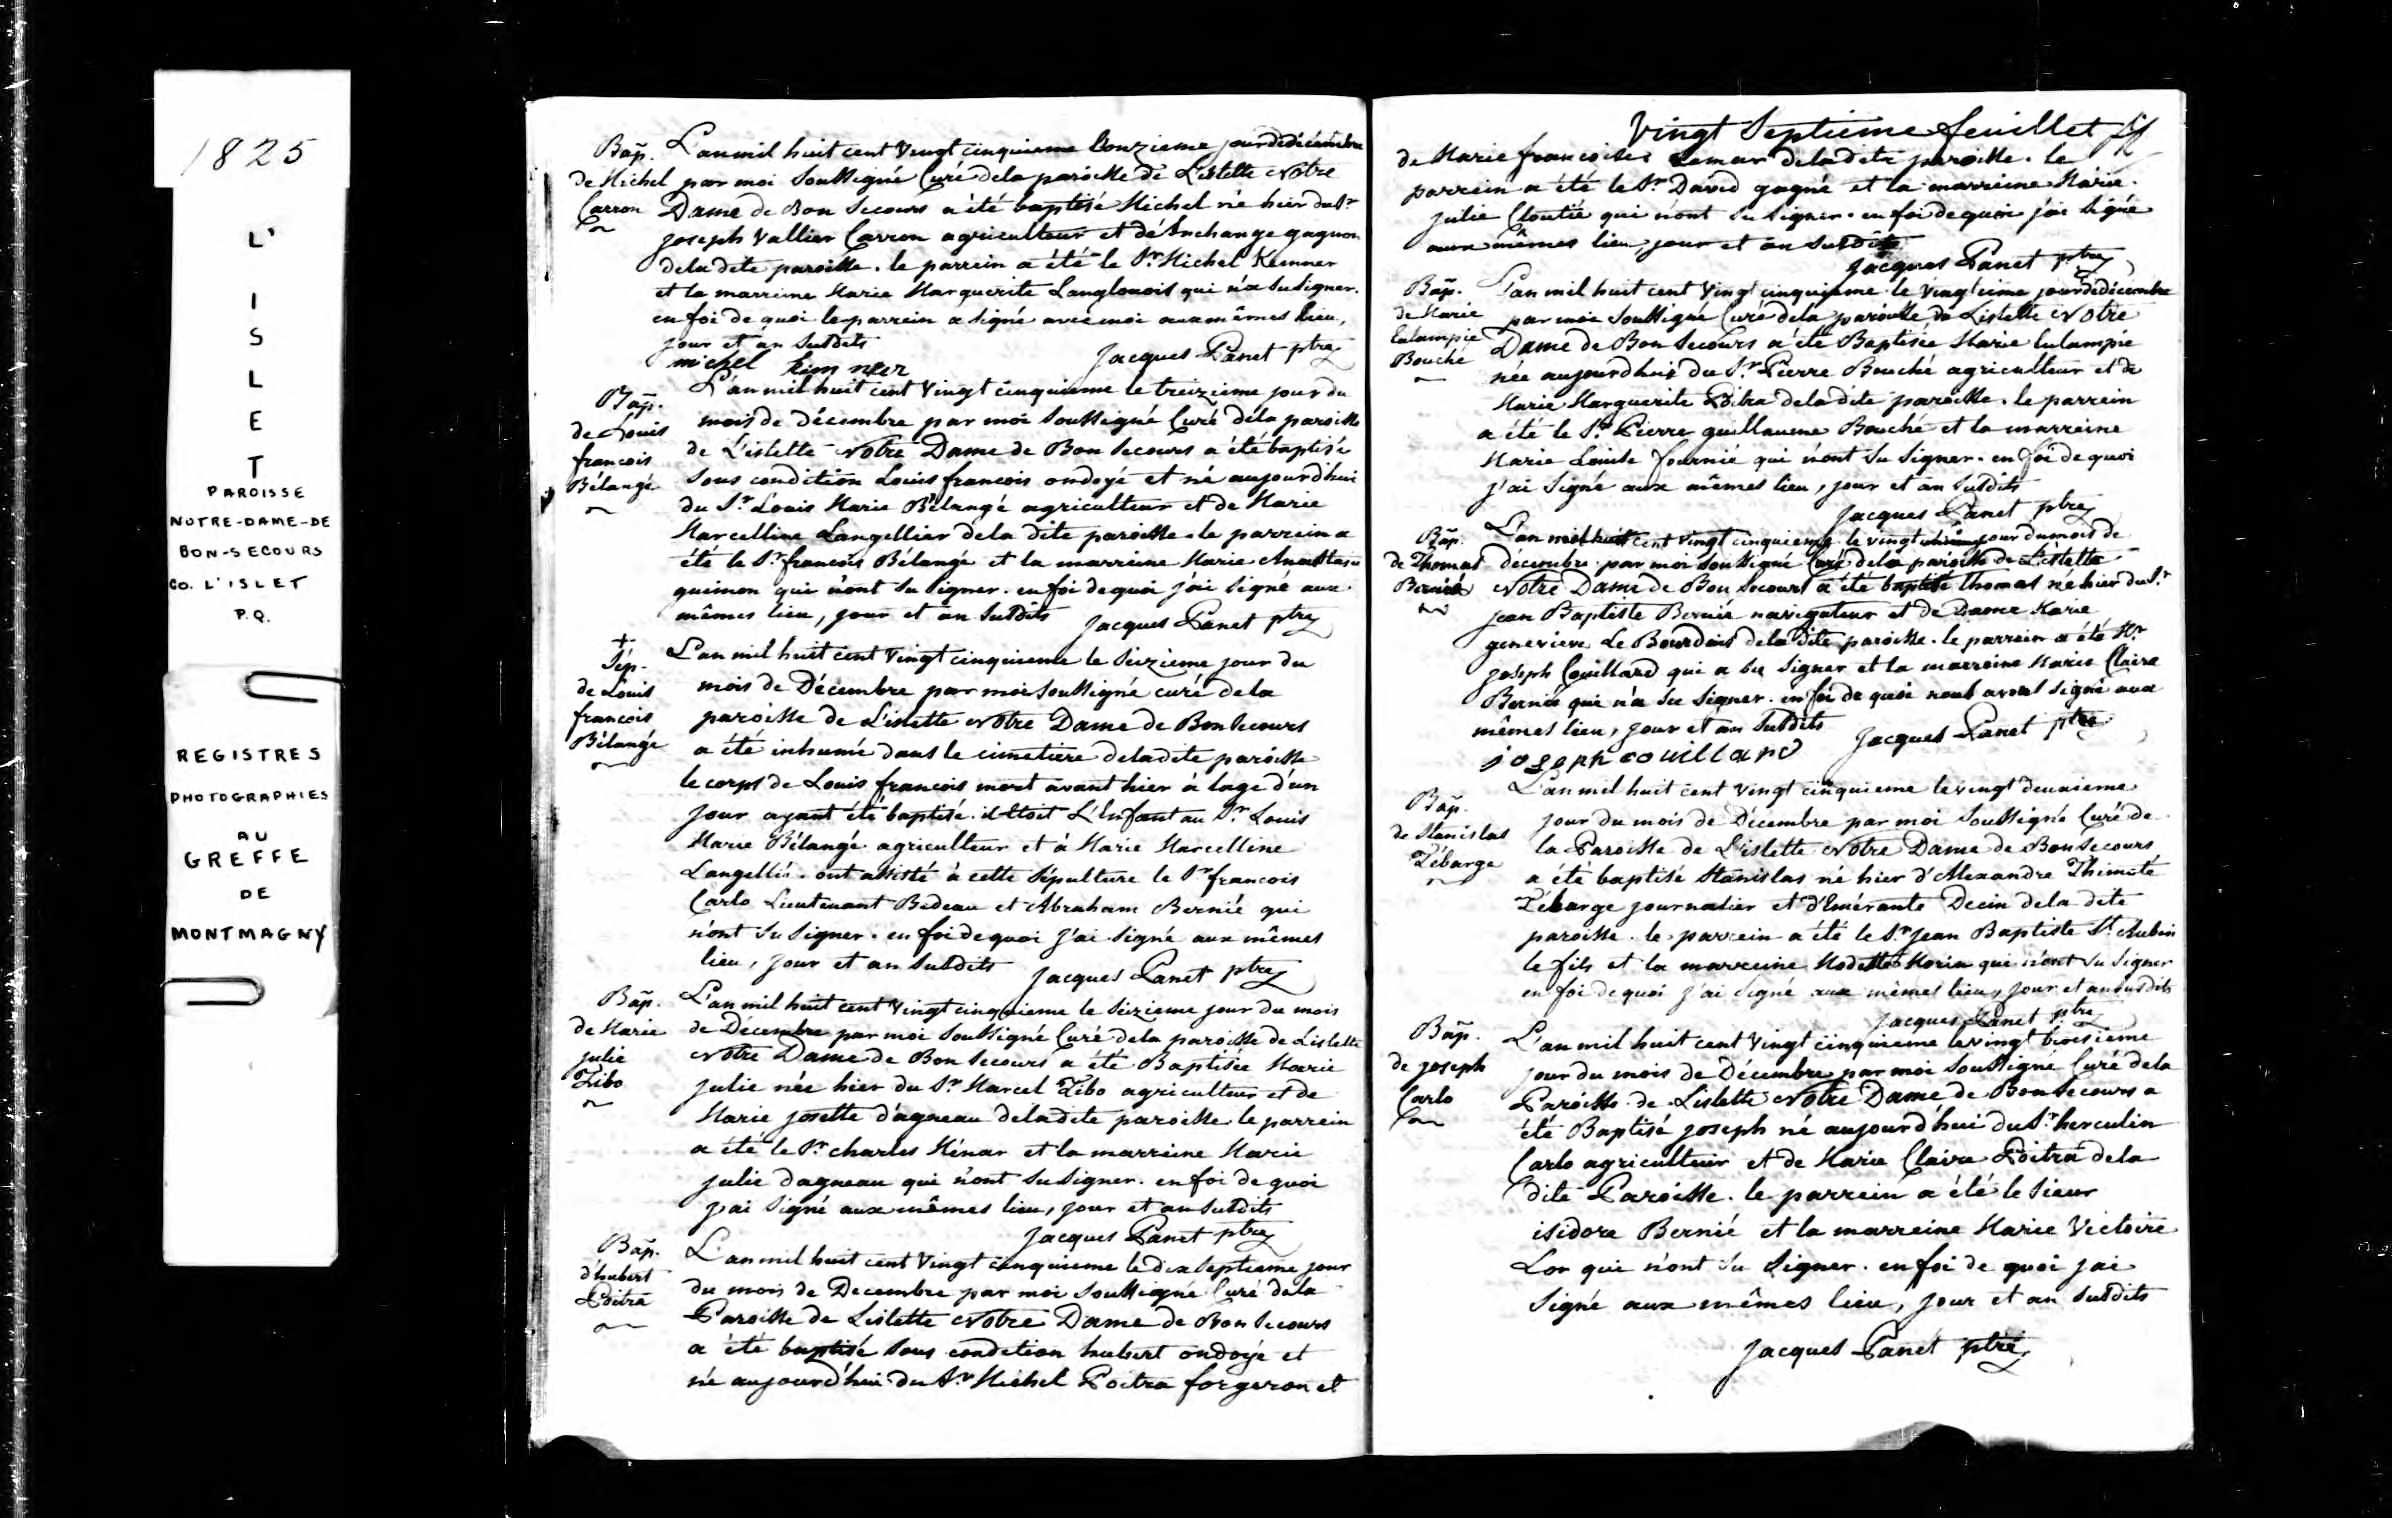 1825
L'
I
S
L
E
T
PAROISSE
NOTRE-DAME-DE
BON-SECOURS
CO. L'ISLET
P.Q.
REGISTRES
PHOTOGRAPHIES
AU
GREFFE
DE
MONTMAGNY
Bap.
de Michel
Carron
L'an mil huit cent vingt cinquieme l'onzieme jour de décembre
par moi soussigné Curé de la paroisse de L'islette Notre
Dame de Bon Secours a été baptisé Michel né hier du Sr
joseph vallier Carron agriculteur et d'Archange gagnon
de la dite paroisse. le parrein a été le Sr Michel Kemner
et la marreine Marie Marguerite Langlouois qui n'a su signer.
en foi de quoi le parrein a signé avec moi aux mêmes lieu,
jour et an susdits
michel kim ner Jacques Panet ptre
Bap.
de Louis
francois
Bélangé
L'an mil huit cent vingt cinquieme le treizieme jour du
mois de décembre par moi soussigné Curé de la paroisse
de L'islette Notre Dame de Bon Secours a été baptisé
sous condition Louis francois ondoyé et né aujourd'hui
du Sr Louis Marie Bélangé agriculteur et de Marie
Marcelline Langellier de la dite paroisse. le parrein a
été le Sr francois Bélangé et la marreine Marie Anastasie
guimon qui n'ont su signer. en foi de quoi j'ai signé aux
mêmes lieu, jour et an susdits Jacques Panet ptre
+
Sep.
de Louis
francois
Bélangé
L'an mil huit cent vingt cinquieme le seizieme jour du
mois de Décembre par moi soussigné curé de la
paroisse de L'islette Notre Dame de Bon Secours
a été inhumé dans le cimetiere de la dite paroisse
le corps de Louis francois mort avant hier à l'age d'un
jour ayant été baptisé. il étoit L'enfant au Sr Louis
Marie Bélangé agriculteur et à Marie Marcelline
Langellié. ont assisté à cette sépulture le Sr francois
Carlo Lieutenant Bedeau et Abraham Bernié qui
n'ont su signer. en foi de quoi j'ai signé aux mêmes
lieu, jour et an susdits Jacques Panet ptre
Bap.
de Marie
julie
Zibo
L'an mil huit cent vingt cinquieme le seizieme jour du mois
de Décembre par moi soussigné Curé de la paroisse de Lislette
Notre Dame de Bon Secours a été Baptisée Marie
julie née hier du Sr Marcel Zibo agriculteur et de
Marie josette d'agneau de la dite paroisse le parrein
a été le Sr charles Ménar et la marreine Marie
julie dagneau qui n'ont su signer. en foi de quoi
j'ai signé aux mêmes lieu, jour et an susdits
Jacques Panet ptre
Bap.
d'hubert
Poitra
L'an mil huit cent vingt cinquieme le dix septieme jour
du mois de Decembre par moi soussigné Curé de la
Paroisse de Lislette Notre Dame de Bon Secours
a été baptisé sous condition hubert ondoyé et
né aujourd'hui du Sr Michel Poitra forgeron et
Vingt Septieme feuillet
de Marie francoise Lemar de la dite paroisse. le
parrein a été le Sr David gagné et la marreine Marie
julie Cloutié qui n'ont su signer. en foi de quoi j'ai signé
aux mêmes lieu, jour et an susdits
Jacques Panet ptre
Bap.
de Marie
Eulampie
Bouché
L'an mil huit cent vingt cinquieme le vingtieme jour de décembre
par moi soussigné Curé de la paroisse de Lislette Notre
Dame de Bon Secours a été Baptisée Marie Eulampie
née aujourdhui du Sr Pierre Bouché agriculteur et de
Marie Marguerite Poitra de la dite paroisse. le parrein
a été le Sr Pierre guillaume Bouché et la marreine
Marie Louise fournié qui n'ont su signer. en foi de quoi
j'ai signé aux mêmes lieu, jour et an susdits
Jacques Panet ptre
Bap.
de Thomas
Bernié
L'an mil huit cent vingt cinquieme le vingt jour du mois de
décembre par moi soussigné Curé de la paroisse de L'islette
Notre Dame de Bon Secours a été baptisé thomas né hier du Sr
jean Baptiste Bernié navigateur et de Dame Marie
genevieve Le Bourdais de la dite paroisse. le parrein a été Mr
joseph Couillard qui a su signer et la marreine Marie Claire
Bernié qui n'a su signer. en foi de quoi nous avons signé aux
mêmes lieu, jour et an susdits
joseph couillard Jacques Panet ptre
Bap.
de Stanislas
Zébarge
L'an mil huit cent vingt cinquieme le vingt deuxieme
jour du mois de Décembre par moi soussigné Curé de
la Paroisse de L'islette Notre Dame de Bon Secours
a été baptisé Stanislas né hier d'Alexandre Thimote
Zébarge journalier et d'Emérante Decin de la dite
paroisse. le parrein a été le Sr Jean Baptiste St Aubin
le fils et la marreine Modeste Morin qui n'ont su signer
en foi de quoi j'ai signé aux mêmes lieu, jour et an susdits
Jacques Panet ptre
Bap.
de joseph
Carlo
L'an mil huit cent vingt cinquieme le vingt troisieme
jour du mois de Décembre par moi soussigné Curé de la
Paroisse de Lislette Notre Dame de Bon Secours a
été Baptisé joseph né aujourd'hui du Sr herculin
Carlo agriculteur et de Marie Claire Poitra de la
dite Paroisse. le parrein a été le Sieur
isidore Bernié et la marreine Marie Victoire
Lor qui n'ont su signer. en foi de quoi j'ai
signé aux mêmes lieu, jour et an susdits
Jacques Panet ptre